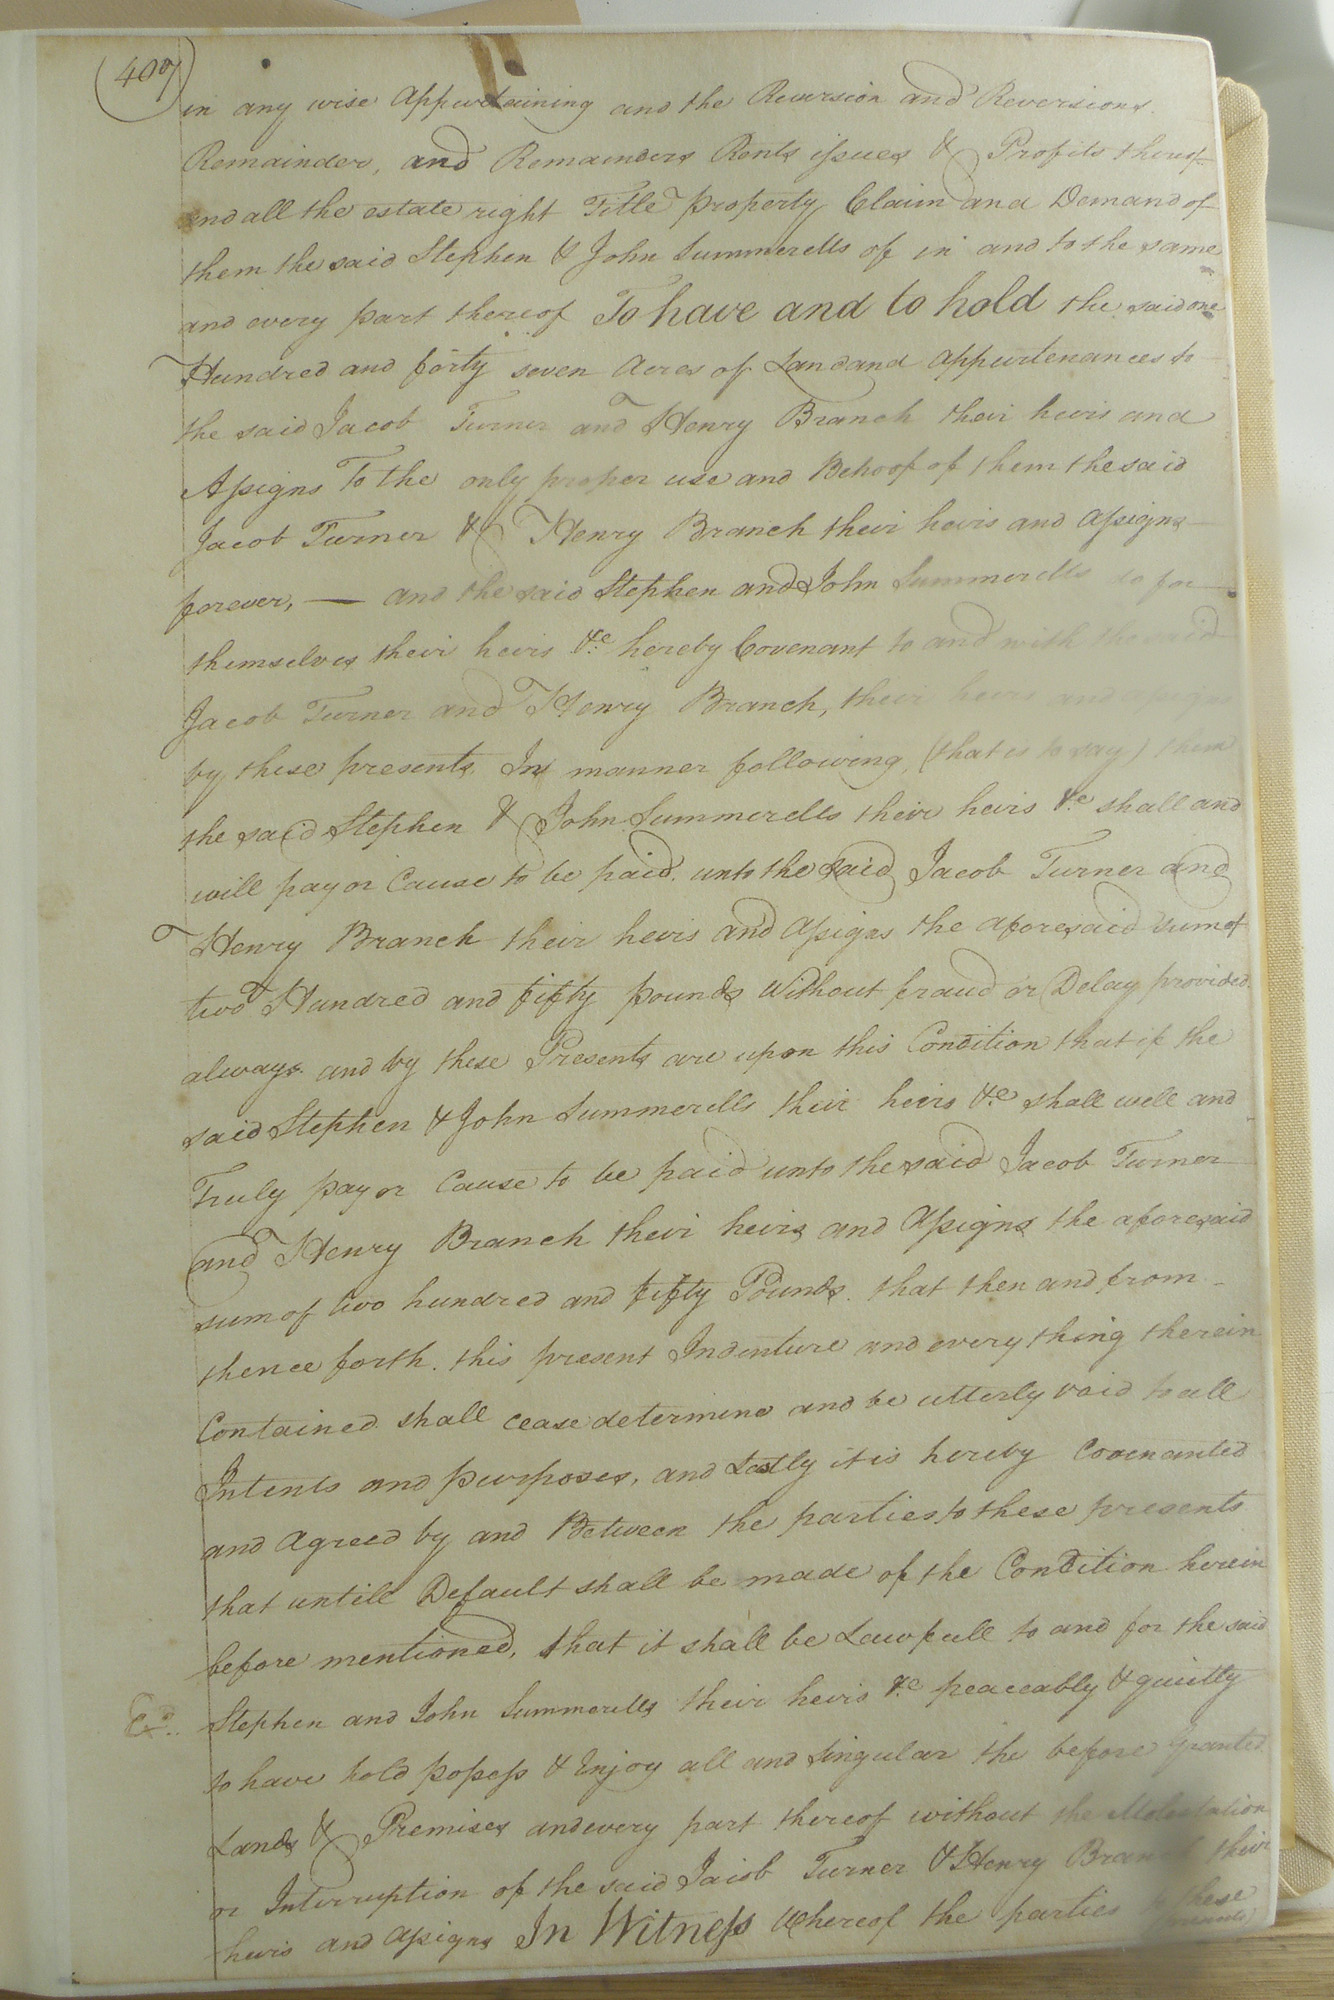 (407)
in any wise Appurtaining and the Reversion and Reversions.
Remainder, and Remainders Rents issues & Profits thereof
and all the estate right Title property Claim and Demand of
them the said Stephen & John Summerells of in and to the same
and every part thereof To have and to hold the said one
Hundred and forty seven Acres of Land and Appurtenances to
the said Jacob Turner and Henry Branch their heirs and
Assigns To the only proper use and Behoof of them the said
Jacob Turner & Henry Branch their heirs and Assigns
forever, — and the said Stephen and John Summerells do for
themselves their heirs &c hereby Covenant to and with the said
Jacob Turner and Henry Branch, their heirs and assigns
by these presents In manner following, (that is to say) them
the said Stephen & John Summerells their heirs &c shall and
will pay or Cause to be paid. unto the said Jacob Turner and
Henry Branch their heirs and Assigns the aforesaid sum of
two Hundred and fifty pounds Without fraud or Delay provided.
always. and by these Presents are upon this Condition that if the
said Stephen & John Summerells their heirs &c shall well and
Truly pay or Cause to be paid unto the said Jacob Turner
and Henry Branch their heirs and Assigns the aforesaid
sum of two hundred and fifty Pounds. that then and from
thence forth. this present Indenture and every thing therein
Contained shall cease determine and be utterly void to all
Intents and purposes, and Lastly it is hereby Covenanted
and Agreed by and Between the parties to these presents
that untill Default shall be made of the Condition herein
before mentioned, that it shall be Lawfull to and for the said
Stephen and John Summerells their heirs &c peaceably & quietly
to have hold possess & Enjoy all and singular the before Granted
Lands & Premises and every part thereof without the Molestation
or Interruption of the said Jacob Turner & Henry Branch their
heirs and Assigns In Witness Whereof the parties to these
presents)